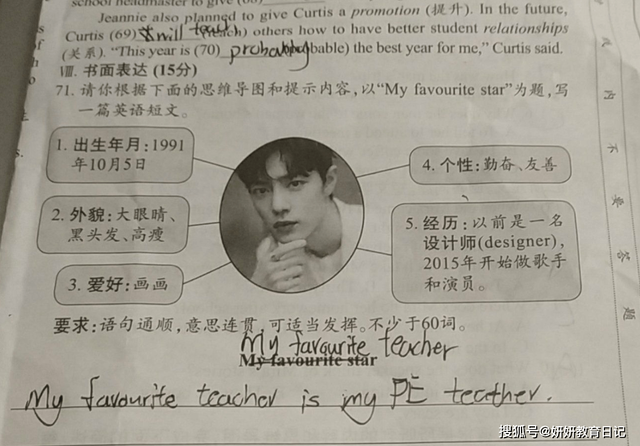 school headmaster to give (68)
Jeannie also planned to give Curtis a promotion (提升). In the future,
Curtis (69) will teach (teach) others how to have better student relationships
(关系). “This year is (70) probably (probable) the best year for me,” Curtis said.
Ⅷ. 书面表达 (15分)
71. 请你根据下面的思维导图和提示内容,以“My favourite star”为题,写
一篇英语短文。
1. 出生年月:1991
年10月5日
2. 外貌:大眼睛、
黑头发、高瘦
3. 爱好:画画
4. 个性:勤奋、友善
5. 经历:以前是一名
设计师(designer),
2015年开始做歌手
和演员。
要求:语句通顺,意思连贯,可适当发挥。不少于60词。
My favourite teacher
My favourite star
My favourite teacher is my PE teacther.
内
不
要
答
题
搜狐号@妍妍教育日记